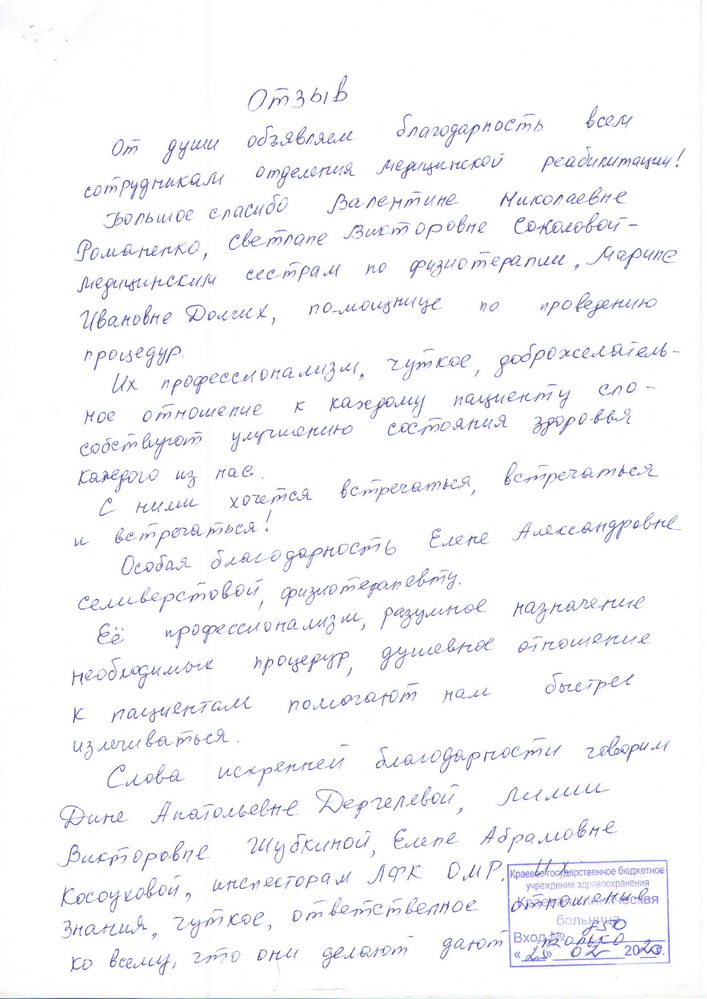 Отзыв
От души объявляем благодарность всем
сотрудникам отделения медицинской реабилитации!
Большое спасибо Валентине Николаевне
Романенко, Светлане Викторовне Соколовой –
медицинским сестрам по физиотерапии, Марине
Ивановне Долгих, помощнице по проведению
процедур.
Их профессионализм, чуткое, доброжелатель-
ное отношение к каждому пациенту спо-
собствуют улучшению состояния здоровья
каждого из нас.
С ними хочется встречаться, встречаться
и встречаться!
Особая благодарность Елене Александровне
Селиверстовой, физиотерапевту.
Её профессионализм, разумное назначение
необходимых процедур, душевное отношение
к пациентам помогают нам быстрее
излечиваться.
Слова искренней благодарности говорим
Дине Анатольевне Дергелевой, Лилии
Викторовне Шубкиной, Елене Абрамовне
Косоуховой, инспекторам ЛФК ОМР. Их
знания, чуткое, ответственное отношение
ко всему, что они делают дают только
Краевое государственное бюджетное
учреждение здравоохранения
Краевая клиническая
больница
Вход №
« 25 » 02 20 г.